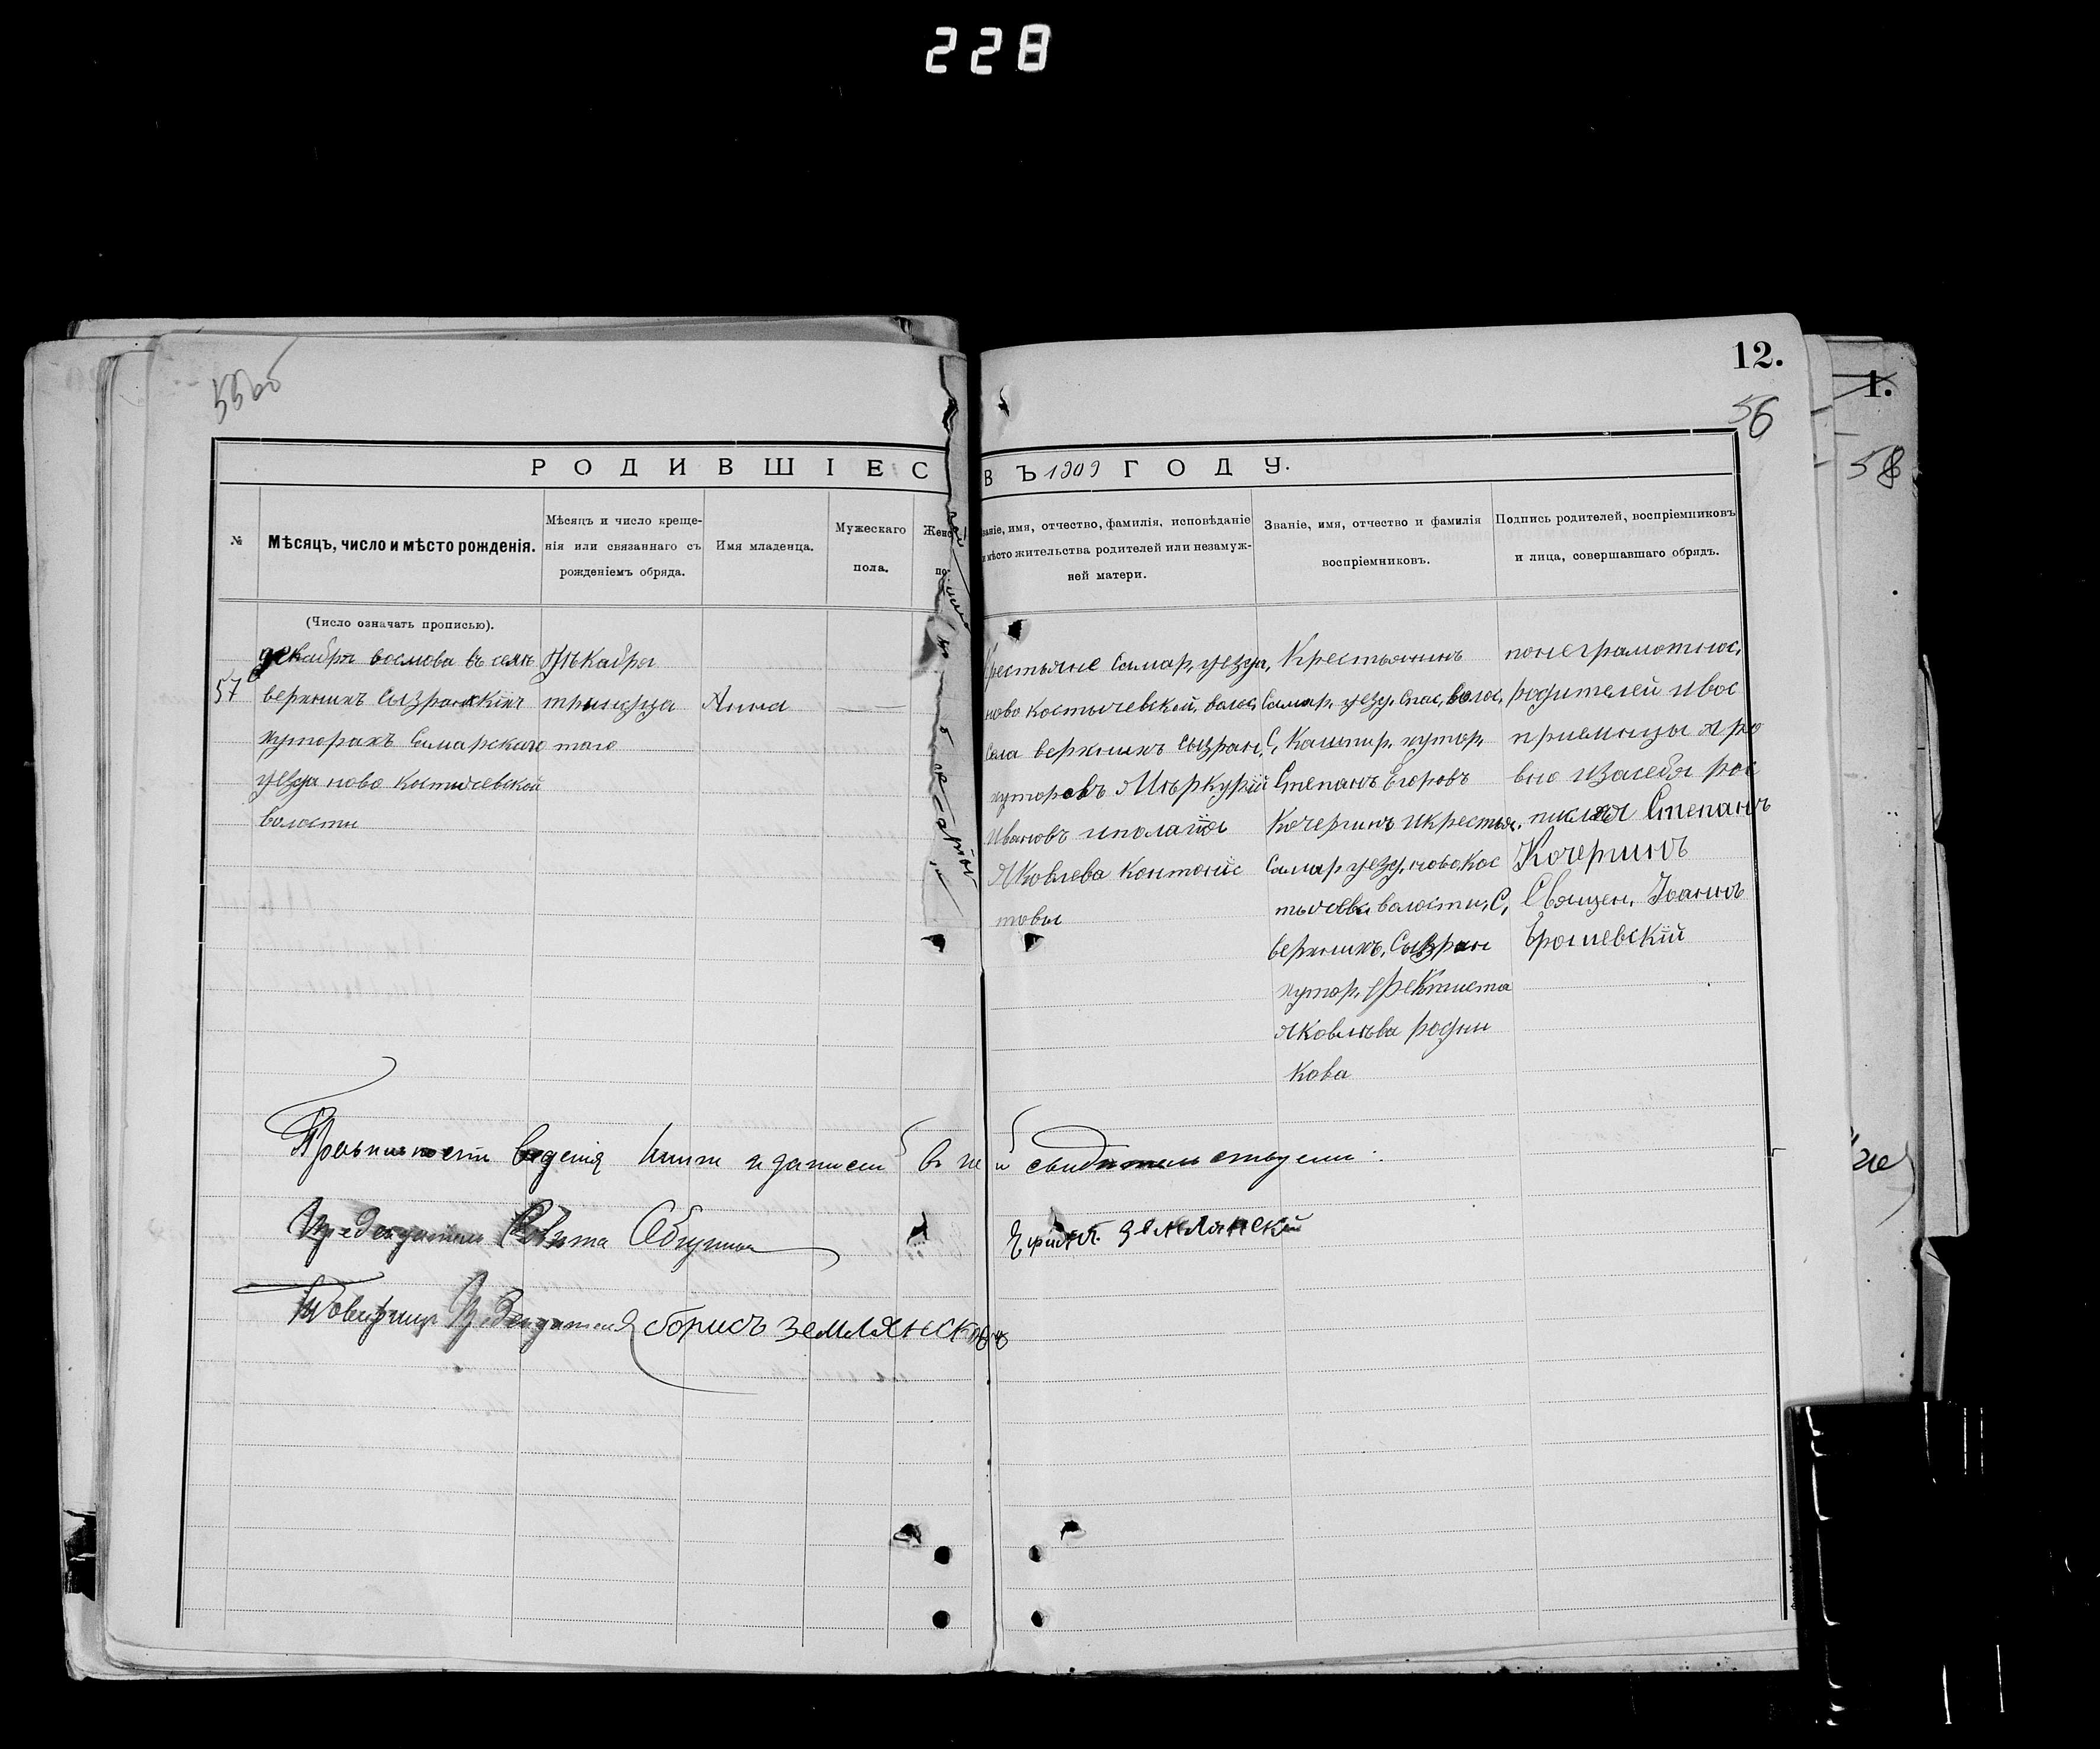 228
12.
1.
55об
56
58
РОДИВШІЕС ВЪ 1909 ГОДУ.
№
Мѣсяцъ, число и мѣсто рожденія.
Мѣсяцъ и число креще-
нія или связаннаго съ
рожденіемъ обряда.
Имя младенца.
Мужескаго
пола.
Женс
по
званіе, имя, отчество, фамилія, исповѣданіе
и мѣсто жительства родителей или незамуж-
ней матери.
Званіе, имя, отчество и фамилія
воспріемниковъ.
Подпись родителей, воспріемниковъ
и лица, совершавшаго обрядъ.
(Число означать прописью).
57
декабря восмова въ селѣ
верхнихъ Сызранскихъ
хуторахъ Самарскаго
уезда ново костичевской
волости
Дѣкабря
трицца
таго
Анна
Крестьяне Самар, уезда,
ново костычевской, волос,
Села верхнихъ Сызран,
хуторовъ Мѣркурій
Ивановъ иполагія
Яковлева Контонис
товы
Крестьянинъ
Самар, уезд, Спас, волос,
С, Кашпир, хутор,
Степанъ Егоровъ
Кочергинъ икрестья,
Самар уезд, новокос
тычевс волости, С,
верхнихъ, Сызран
хутор, Фектиста
Яковлѣва родни
кова
понеграмотнос,
родителей ивос
приемницы Я ру
вно изасебя рос
писался Степанъ
Кочергинъ
Священ, Іоаннъ
Ерошевскій
Правильность ведения книги и записей въ ней свидетельствуемъ.
Председатель Совета
Ефимъ Землянскій
Товарищъ Председателя Борисъ Землянсков